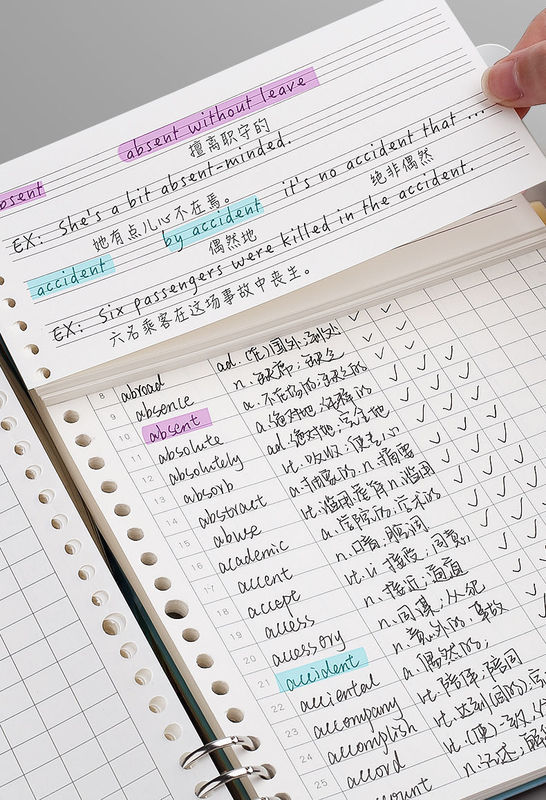 absent without leave
擅离职守的
absent
EX: She's a bit absent-minded.
她有点儿心不在焉。
by accident
偶然地
it's no accident that ...
绝非偶然
accident
EX: Six passengers were killed in the accident.
六名乘客在这场事故中丧生。
8 abroad ad. (在)国外;到处
9 absence n. 缺席;缺乏
10 absent a. 不在场的;缺乏的
11 absolute a. 绝对的;纯粹的
12 absolutely ad. 绝对地;完全地
13 absorb vt. 吸收;使专心
14 abstract a. 抽象的 n. 摘要
15 abuse vt. 滥用;虐待 n. 滥用
16 academic a. 学院的;学术的
17 accent n. 口音;腔调
18 accept vt. vi. 接受;同意
19 access n. 接近;通道
20 accessory n. 同谋;从犯
21 accident n. 意外的;事故
22 acciental a. 偶然的;
23 accompany vt. 陪伴;陪同
24 accomplish vt. 达到(目的);完
25 accord vt. (使)一致;
count n. 记述;解